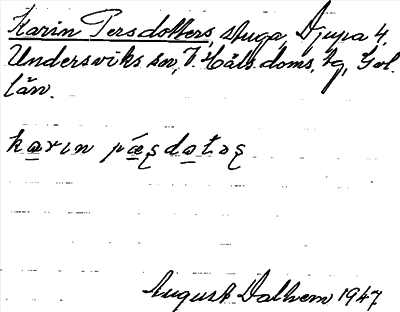 Karin Persdotters, stuga, Djupa 4,
Undersviks sn, V. Häls. doms. tg, Gvl.
län.
karin pæşdotəş
August Dalhem 1947